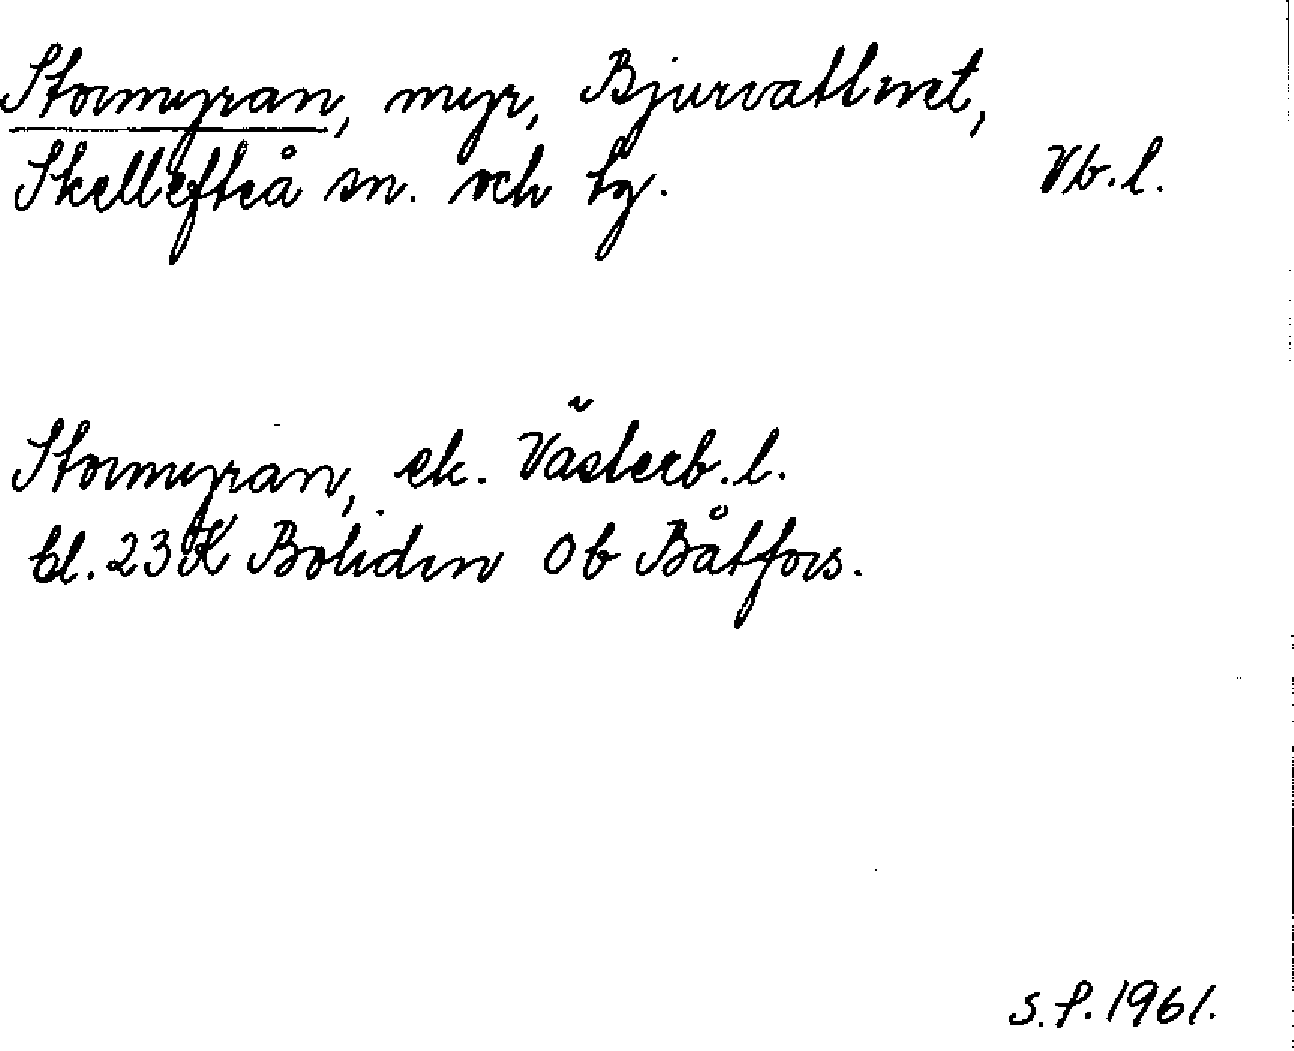 Stormyran, myr, Bjurvattnet,
Skellefteå sn. och tg. Vb.l.
Stormyran, ek. Västerb.l.
bl. 23 K Boliden 0 b Båtfors.
S.P. 1961.